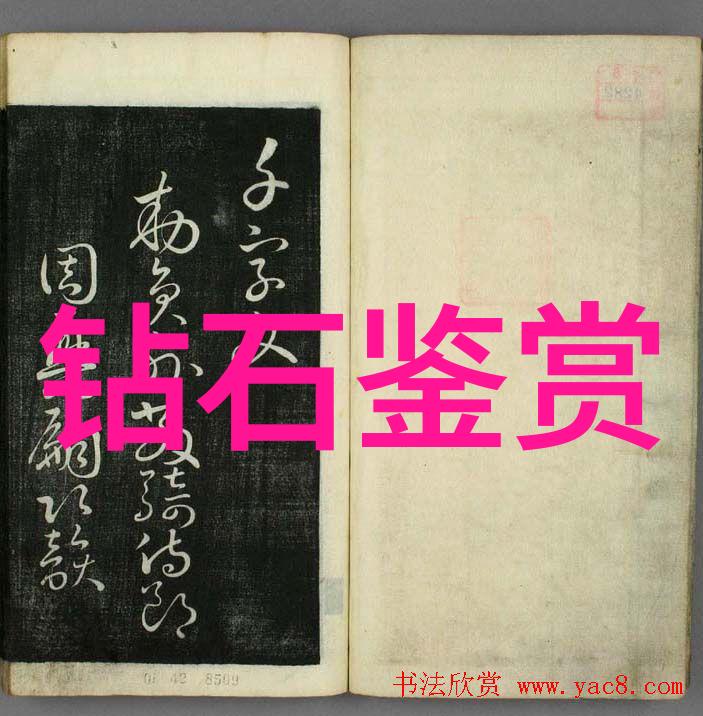 千字文
勅員外散騎侍郎
周興嗣次韻
钻石鉴赏
书法欣赏 www.yac8.com